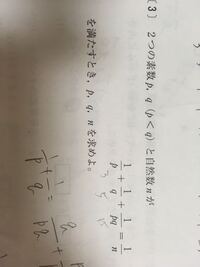 〔3〕 2つの素数p, q (p<q)と自然数nが
1/p + 1/q + 1/pq = 1/n
を満たすとき, p, q, n を求めよ。
1/p + 1/q